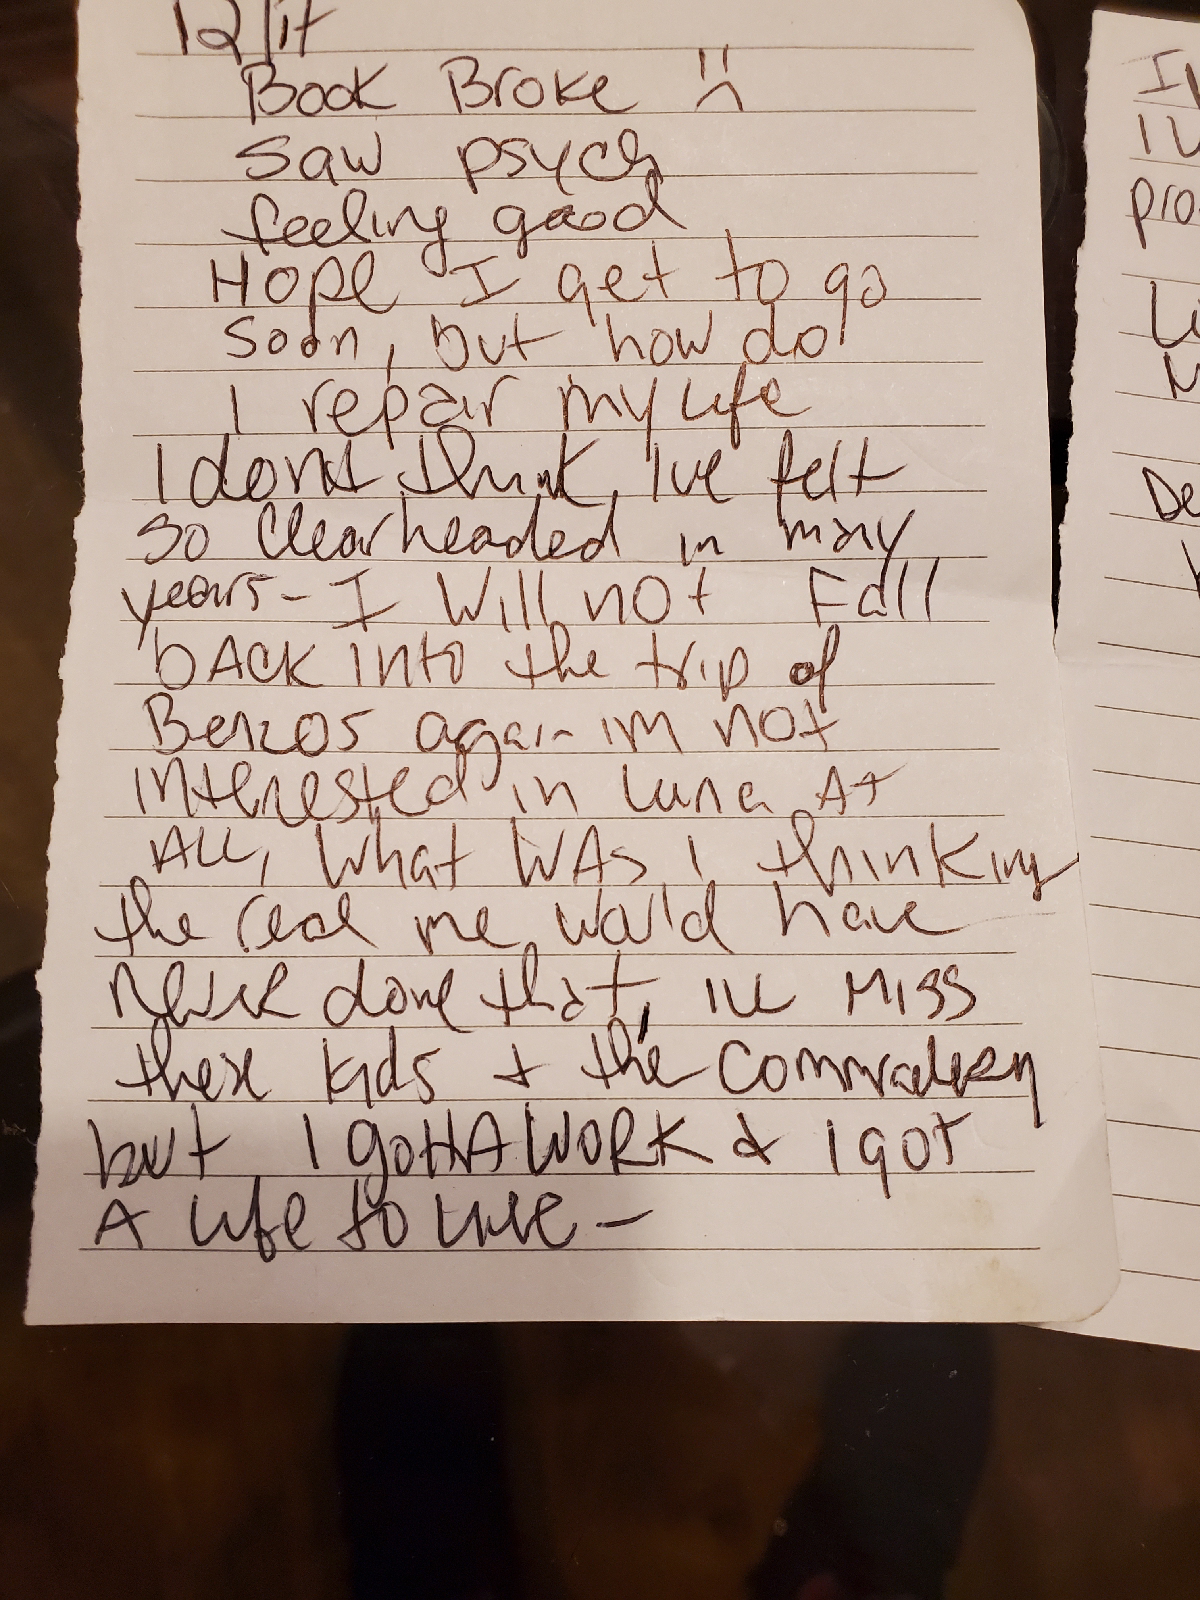 12/17
Book Broke
Saw psych
feeling good
Hope I get to go
Soon, but how do
I repair my life
I dont think, Ive felt
so Clearheaded in many
years - I Will not Fall
bACK INto the trip of
Benzos again im not
interested in Luna At
ALL, What WAs I thinking
the real me would have
never done that, ILL MISS
these kids + the Commraderey
but I gottA WORK & I got
A life to live -
pro
De